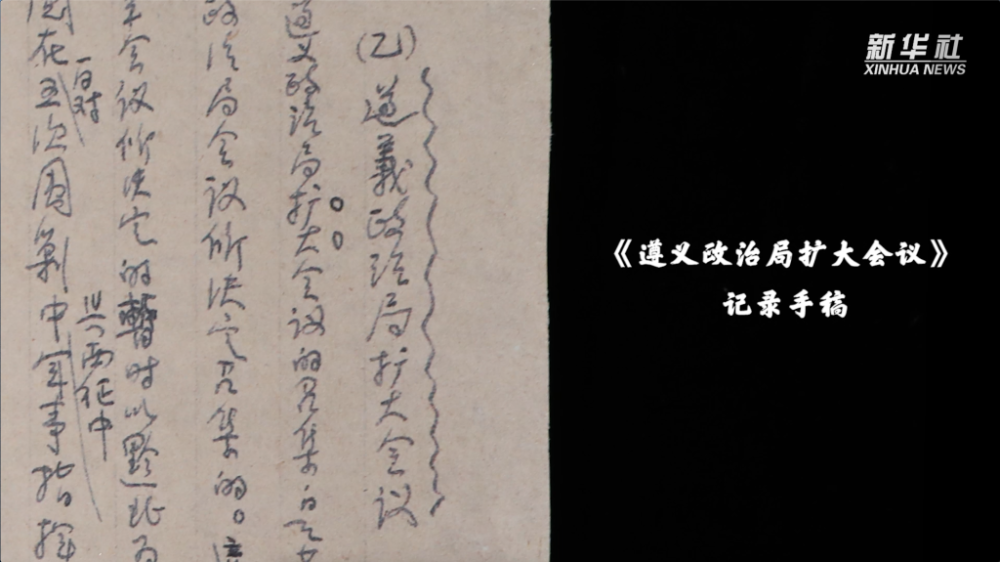 (乙)遵義政治局扩大会议
遵义政治局扩大会议的召集
政治局会议所决定召集的。
会议所决定的暂时以黔北为
在五次围剿中军事指挥
与西征中
新华社
XINHUA NEWS
《遵义政治局扩大会议》
记录手稿